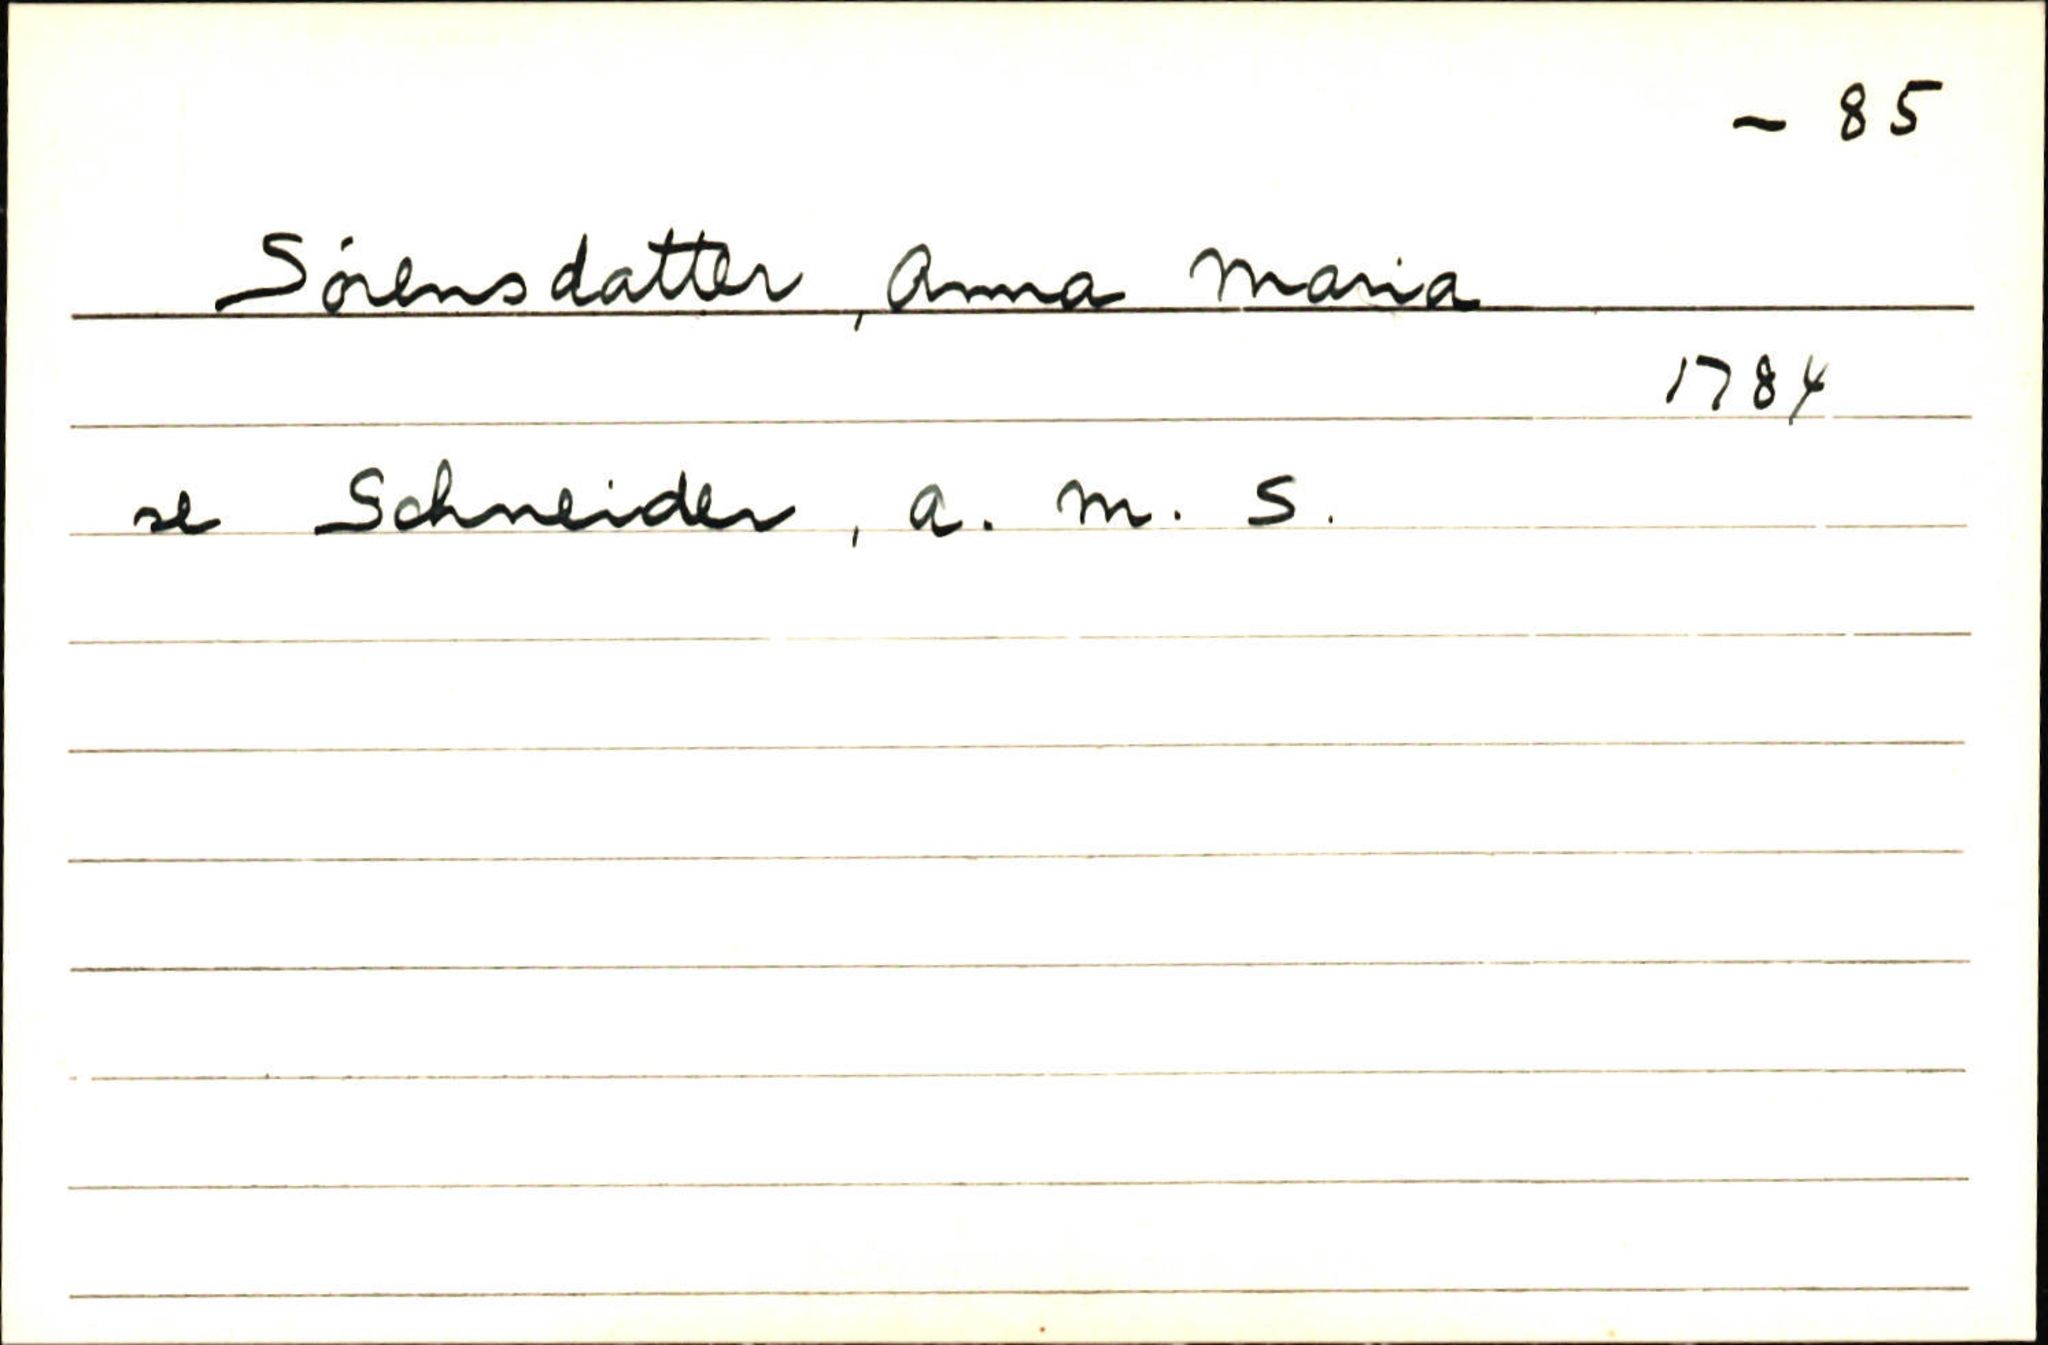 ~ 85
Sørensdatter, Anna Maria
1784
se Schneider, A. M. S.